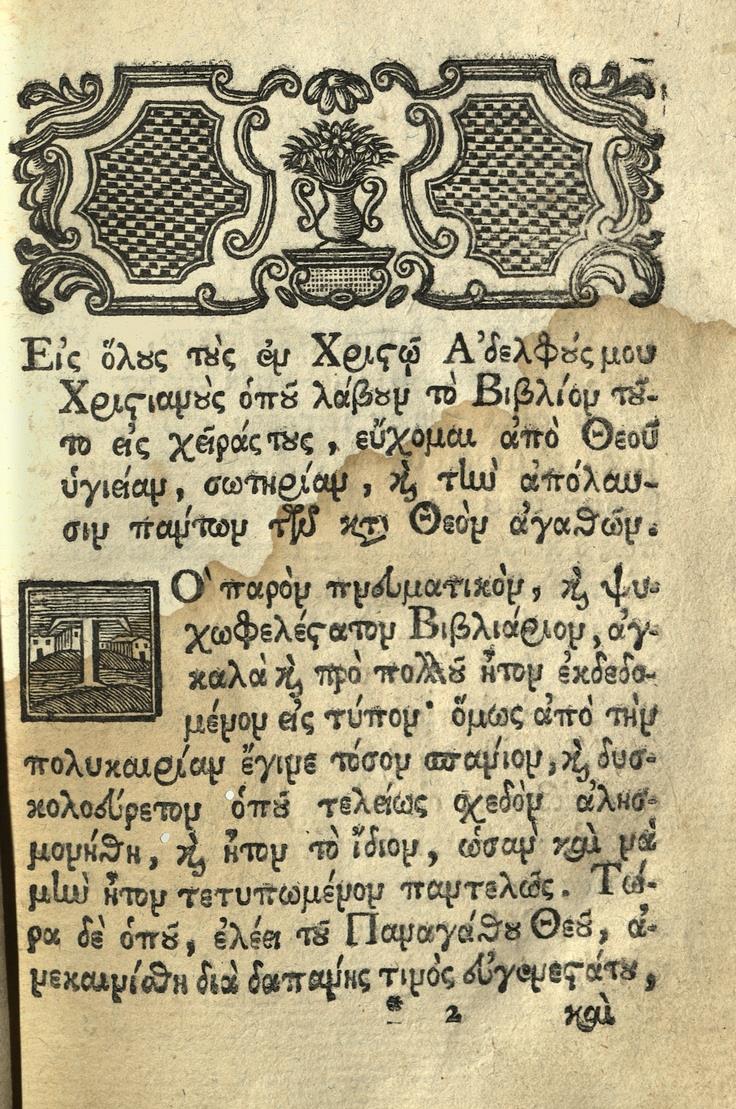 Εἰς ὅλους τοὺς ἐν Χριστῷ Ἀδελφούς μου
Χριστιανοὺς ὁποῦ λάβουν τὸ Βιβλίον τοῦ-
το εἰς χεῖράς τους, εὔχομαι ἀπὸ Θεοῦ
ὑγιείαν, σωτηρίαν, καὶ τὴν ἀπόλαυ-
σιν πάντων τῶν κατὰ Θεὸν ἀγαθῶν.
ΤΟ' παρὸν πνευματικὸν, καὶ ψυ-
χωφελέστατον Βιβλιάριον, ἀγ-
καλὰ καὶ πρὸ πολλοῦ ἦτον ἐκδεδο-
μένον εἰς τύπον· ὅμως ἀπὸ τὴν
πολυκαιρίαν ἔγινε τόσον σπάνιον, καὶ δυσ-
κολοεύρετον ὁποῦ τελείως σχεδὸν ἀλησ-
μονήθη, καὶ ἦτον τὸ ἴδιον, ὡσὰν καὶ νὰ
μὴν ἦτον τετυπωμένον παντελῶς. Τώ-
ρα δὲ ὁποῦ, ἐλέει τοῦ Παναγάθου Θεοῦ, ἀ-
νεκαινίσθη διὰ δαπάνης τινὸς εὐγενεστάτου,
* 2 καὶ